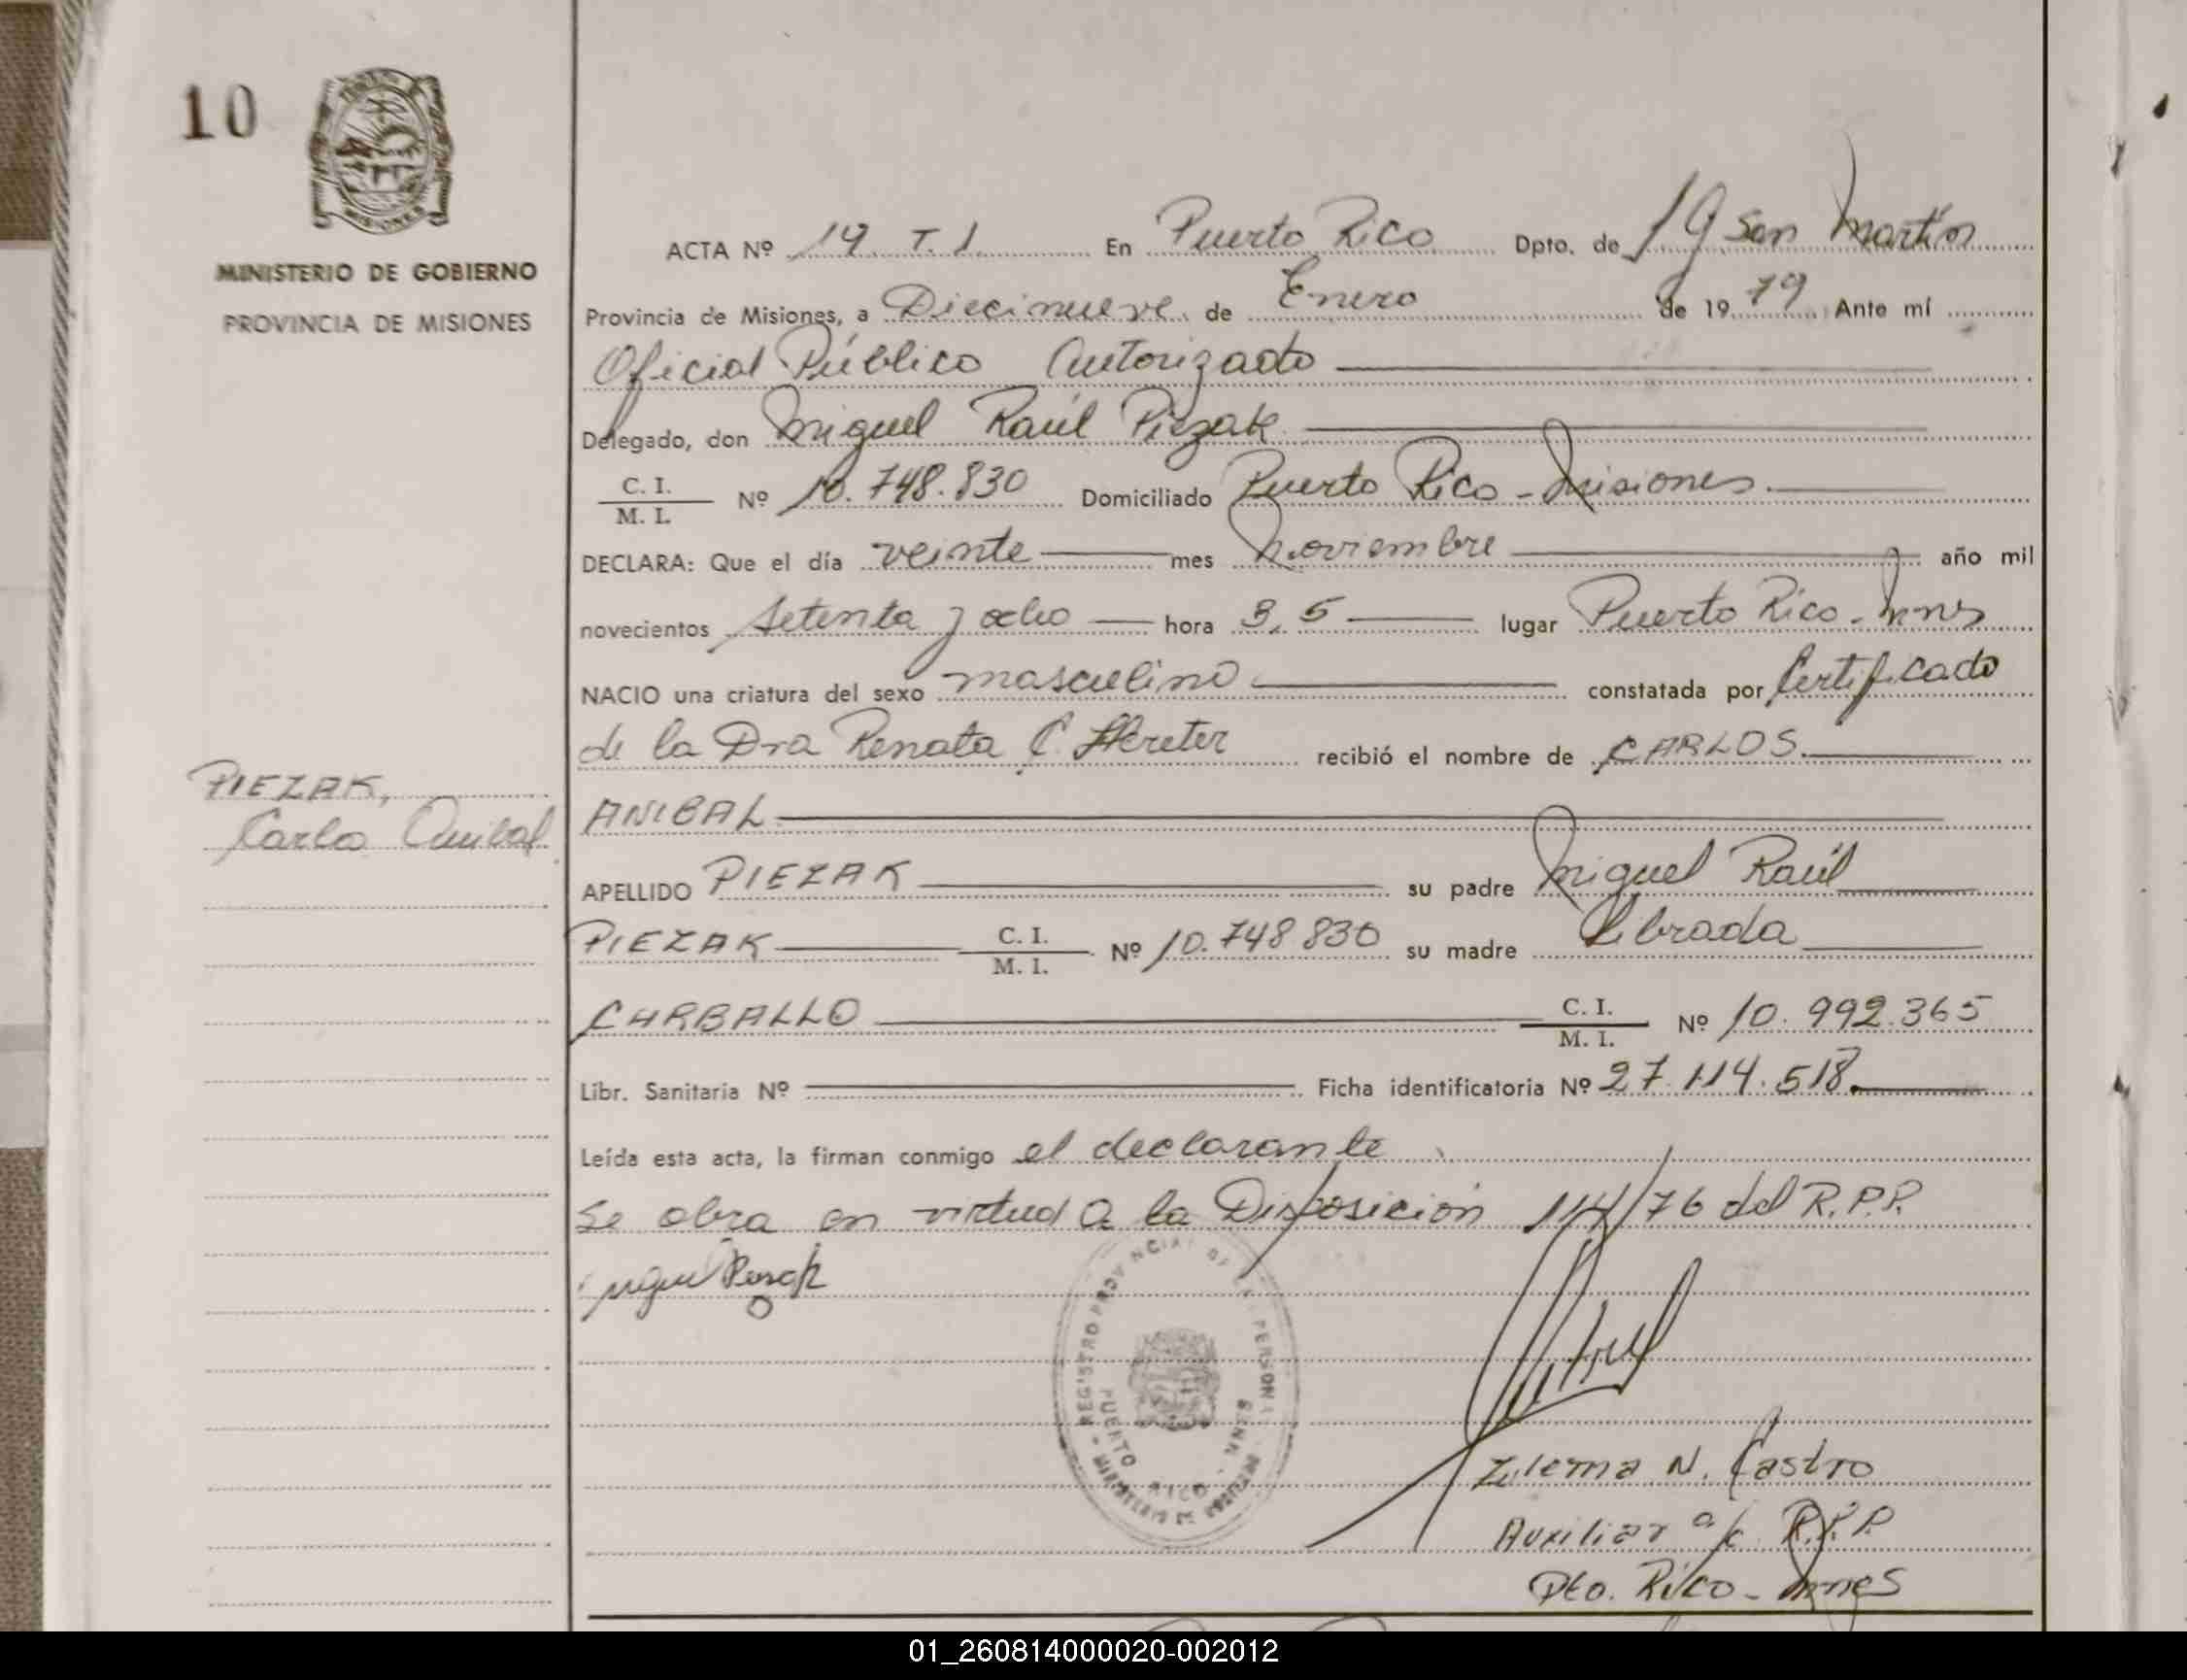 10
MISIONES
MINISTERIO DE GOBIERNO
PROVINCIA DE MISIONES
PIEZAK,
Carlos Anibal
ACTA Nº 19 T. 1. En Puerto Rico Dpto. de L. G San Martín
Provincia de Misiones, a Diecinueve de Enero de 1979 Ante mí
Oficial Público Autorizado
Delegado, don Miguel Raúl Piezak
C. I. / M. I. Nº 10.748.830 Domiciliado Puerto Rico - Misiones.
DECLARA: Que el día veinte mes Noviembre año mil
novecientos setenta y ocho hora 3,5 lugar Puerto Rico - Mnes
NACIO una criatura del sexo masculino constatada por Certificado
de la Dra Renata C. recibió el nombre de CARLOS.
ANIBAL
APELLIDO PIEZAK su padre Miguel Raúl
PIEZAK C. I. / M. I. Nº 10.748 830 su madre Librada
CARBALLO C. I. / M. I. Nº 10. 992.365
Libr. Sanitaria Nº Ficha identificatoria Nº 27.114.518
Leída esta acta, la firman conmigo el declarante
Se obra en virtud a la Disposición 114/76 del R.P.P.
REGISTRO PROVINCIAL DE LAS PERSONAS
PUERTO RICO - MNES
MINISTERIO DE GOBIERNO
Zulema N. Castro
Auxiliar a/c R.P.P
Pto. Rico - Mnes
01_260814000020-002012